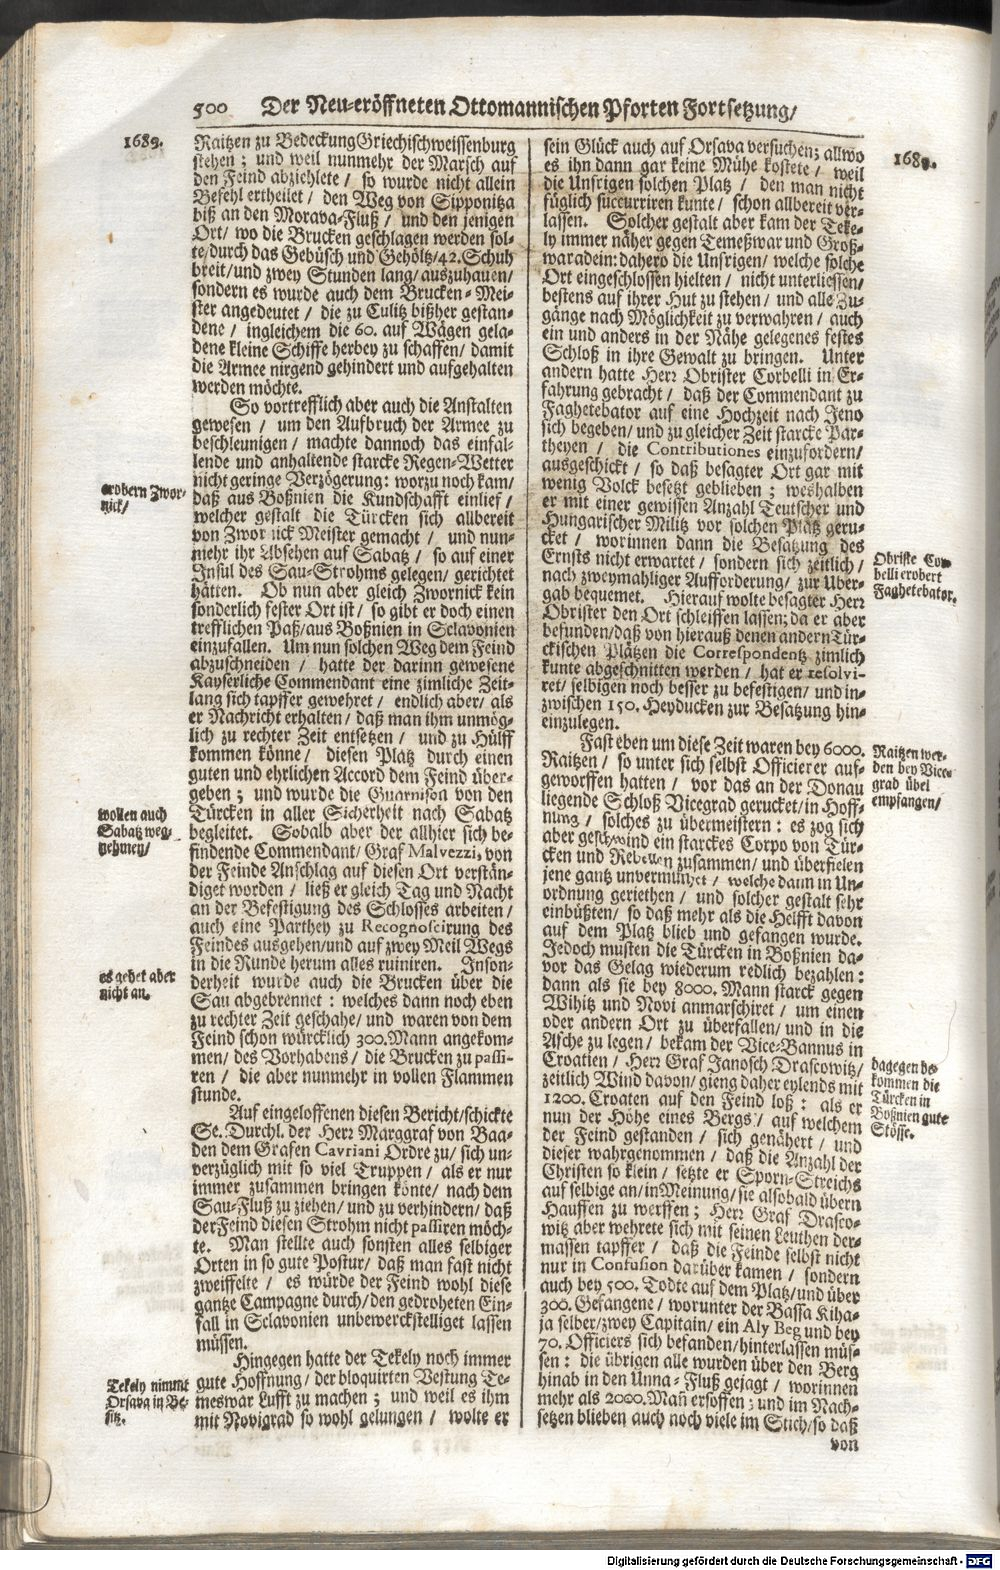 500 Der Neu-eröffneten Ottomannischen Pforten Fortsetzung/
1689.
Raitzen zu Bedeckung Griechischweissenburg
stehen; und weil nunmehr der Marsch auf
den Feind abziehlete / so wurde nicht allein
Befehl ertheilet / den Weg von Sipponitza
biß an den Morava-Fluß / und den jenigen
Ort/ wo die Brucken geschlagen werden sol-
te/durch das Gebüsch und Gehöltz/42. Schuh
breit/und zwey Stunden lang/ auszuhauen/
sondern es wurde auch dem Brucken-Mei-
ster angedeutet / die zu Culitz bißher gestan-
dene / ingleichem die 60. auf Wägen gela-
dene kleine Schiffe herbey zu schaffen/ damit
die Armee nirgend gehindert und aufgehalten
werden möchte.
So vortrefflich aber auch die Anstalten
gewesen / um den Aufbruch der Armee zu
beschleunigen / machte dannoch das einfal-
lende und anhaltende starcke Regen-Wetter
nicht geringe Verzögerung: worzu noch kam/
daß aus Boßnien die Kundschafft einlief /
welcher gestalt die Türcken sich allbereit
von Zwornick Meister gemacht / und nun-
mehr ihr Absehen auf Sabatz / so auf einer
Insul des Sau-Strohms gelegen/ gerichtet
hätten. Ob nun aber gleich Zwornick kein
sonderlich fester Ort ist / so gibt er doch einen
trefflichen Paß/aus Boßnien in Sclavonien
einzufallen. Um nun solchen Weg dem Feind
abzuschneiden / hatte der darinn gewesene
Kayserliche Commendant eine zimliche Zeit-
lang sich tapffer gewehret / endlich aber/ als
er Nachricht erhalten / daß man ihm unmög-
lich zu rechter Zeit entsetzen / und zu Hülff
kommen könne / diesen Platz durch einen
guten und ehrlichen Accord dem Feind über-
geben; und wurde die Guarnison von den
Türcken in aller Sicherheit nach Sabatz
begleitet. Sobalb aber der allhier sich be-
findende Commendant/ Graf Malvezzi, von
der Feinde Anschlag auf diesen Ort verstän-
diget worden / ließ er gleich Tag und Nacht
an der Befestigung des Schlosses arbeiten /
auch eine Parthey zu Recognoscirung des
Feindes ausgehen/und auf zwey Meil Wegs
in die Runde herum alles ruiniren. Inson-
derheit wurde auch die Brucken über die
Sau abgebrennet: welches dann noch eben
zu rechter Zeit geschahe/ und waren von dem
Feind schon würcklich 300. Mann angekom-
men/ des Vorhabens / die Brucken zu passi-
ren / die aber nunmehr in vollen Flammen
stunde.
Auf eingeloffenen diesen Bericht/schickte
Se. Durchl. der Herr Marggraf von Baa-
den dem Grafen Cavriani Ordre zu/ sich un-
verzüglich mit so viel Truppen/ als er nur
immer zusammen bringen könte/ nach dem
Sau-Fluß zu ziehen/ und zu verhindern/ daß
der Feind diesen Strohm nicht passiren möch-
te. Man stellte auch sonsten alles selbiger
Orten in so gute Postur/ daß man fast nicht
zweiffelte / es würde der Feind wohl diese
gantze Campagne durch/den gedroheten Ein-
fall in Sclavonien unbewerckstelliget lassen
müssen.
Hingegen hatte der Tekely noch immer
gute Hoffnung/ der bloquirten Vestung Te-
meswar Lufft zu machen; und weil es ihm
mit Novigrad so wohl gelungen / wolte er
erobern Zwor-
nick/
wollen auch
Sabatz weg-
nehmen/
es gehet aber
nicht an.
Tekely nimmt
Orsava in Be-
sitz.
1689.
sein Glück auch auf Orsava versuchen; allwo
es ihn dann gar keine Mühe kostete / weil
die Unsrigen solchen Platz / den man nicht
füglich succurriren kunte / schon allbereit ver-
lassen. Solcher gestalt aber kam der Teke-
ly immer näher gegen Temeßwar und Groß-
waradein: dahero die Unsrigen/ welche solche
Ort eingeschlossen hielten / nicht unterliessen/
bestens auf ihrer Hut zu stehen / und alle Zu-
gänge nach Möglichkeit zu verwahren / auch
ein und anders in der Nähe gelegenes festes
Schloß in ihre Gewalt zu bringen. Unter
andern hatte Herr Obrister Corbelli in Er-
fahrung gebracht / daß der Commendant zu
Faghetebator auf eine Hochzeit nach Jeno
sich begeben/ und zu gleicher Zeit starcke Par-
theyen / die Contributiones einzufordern/
ausgeschickt / so daß besagter Ort gar mit
wenig Volck besetzt geblieben; weshalben
er mit einer gewissen Anzahl Teutscher und
Hungarischer Militz vor solchen Platz geru-
cket / worinnen dann die Besatzung des
Ernsts nicht erwartet / sondern sich zeitlich /
nach zweymahliger Aufforderung/ zur Uber-
gab bequemet. Hierauf wolte besagter Herr
Obrister den Ort schleiffen lassen; da er aber
befunden/daß von hierauß denen andern Tür-
ckischen Plätzen die Correspondentz zimlich
kunte abgeschnitten werden / hat er resolvi-
ret/ selbigen noch besser zu befestigen/ und in-
zwischen 150. Heyducken zur Besatzung hin-
einzulegen.
Fast eben um diese Zeit waren bey 6000.
Raitzen / so unter sich selbst Officierer auf-
geworffen hatten / vor das an der Donau
liegende Schloß Vicegrad gerucket/in Hoff-
nung / solches zu übermeistern: es zog sich
aber geschwind ein starckes Corpo von Tür-
cken und Rebellen zusammen/ und überfielen
jene gantz unvermuthet / welche dann in Un-
ordnung geriethen / und solcher gestalt sehr
einbüßten/ so daß mehr als die Helfft davon
auf dem Platz blieb und gefangen wurde.
Jedoch musten die Türcken in Boßnien da-
vor das Gelag wiederum redlich bezahlen:
dann als sie bey 8000. Mann starck gegen
Wihitz und Novi anmarschiret / um einen
oder andern Ort zu überfallen/ und in die
Asche zu legen/ bekam der Vice-Bannus in
Croatien / Herr Graf Janosch Drascowitz/
zeitlich Wind davon/ gieng daher eylends mit
1200. Croaten auf den Feind loß: als er
nun der Höhe eines Bergs / auf welchem
der Feind gestanden / sich genähert / und
dieser wahrgenommen / daß die Anzahl der
Christen so klein / setzte er Sporn-Streichs
auf selbige an/in Meinung/ sie alsobald übern
Hauffen zu werffen; Herr Graf Drasco-
witz aber wehrete sich mit seinen Leuthen der-
massen tapffer / daß die Feinde selbst nicht
nur in Confusion darüber kamen / sondern
auch bey 500. Todte auf dem Platz/und über
300. Gefangene / worunter der Bassa Kiha-
ja selber/zwey Capitain/ ein Aly Beg und bey
70. Officiers sich befanden/hinterlassen müs-
sen: die übrigen alle wurden über den Berg
hinab in den Unna-Fluß gejagt / worinnen
mehr als 2000. Mañ ersoffen; und im Nach-
setzen blieben auch noch viele im Stich/so daß
von
Obriste Cor-
belli erobert
Faghetebator.
Raitzen wer-
den bey Vice-
grad übel
empfangen/
dagegen be-
kommen die
Türcken in
Boßnien gute
Stösse.
Digitalisierung gefördert durch die Deutsche Forschungsgemeinschaft - DFG